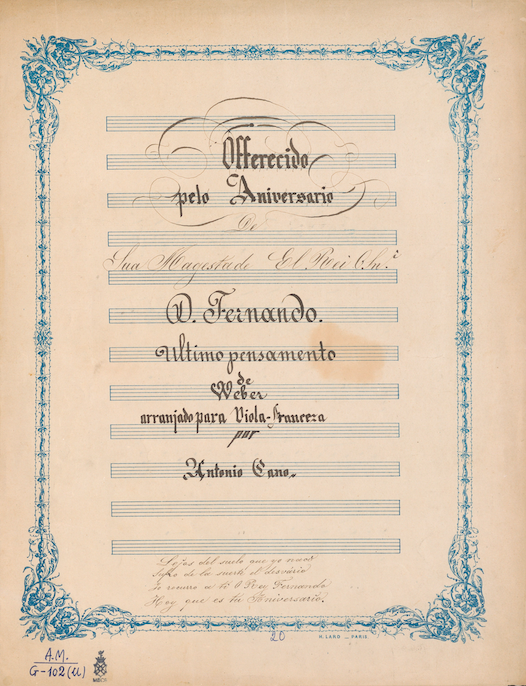 Offerecido
pelo Aniversario
De
Sua Magestade El Rei O Sn.r
D. Fernando.
Ultimo pensamento
de
Weber
arranjado para Viola-Franceza
por
Antonio Cano.
Lejos del suelo que yo nací
Sufro de la suerte el desvário
Hoy que es tu Aniversario.
20
H. LARD _ PARIS
A.M.
G-102 (11)